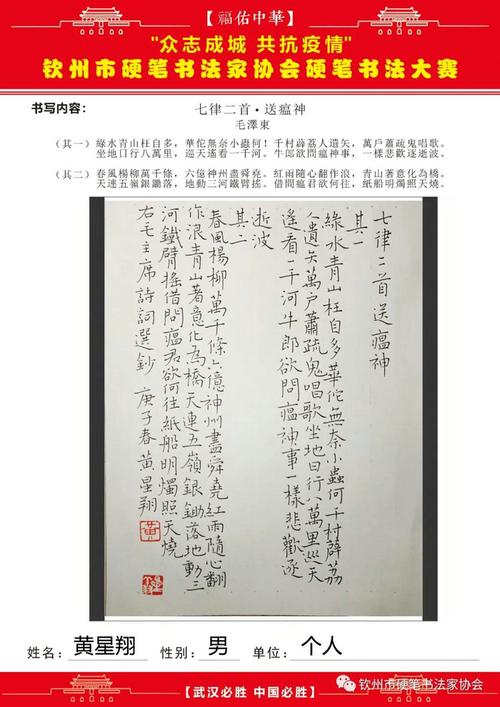 【福佑中華】
"众志成城 共抗疫情"
钦州市硬笔书法家协会硬笔书法大赛
书写内容：
七律二首·送瘟神
毛澤東
(其一) 綠水青山枉自多，華佗無奈小蟲何！千村薜荔人遺矢，萬戶蕭疏鬼唱歌。
坐地日行八萬里，巡天遙看一千河。牛郎欲問瘟神事，一樣悲歡逐逝波。
(其二) 春風楊柳萬千條，六億神州盡舜堯。紅雨隨心翻作浪，青山著意化為橋。
天連五嶺銀鋤落，地動三河鐵臂搖。借問瘟君欲何往，紙船明燭照天燒。
七律二首送瘟神
其一
綠水青山枉自多華佗無奈小蟲何千村薜荔
人遺矢萬戶蕭疏鬼唱歌坐地日行八萬里巡天
遙看一千河牛郎欲問瘟神事一樣悲歡逐
逝波
其二
春風楊柳萬千條六億神州盡舜堯紅雨隨心翻
作浪青山著意化為橋天連五嶺銀鋤落地動三
河鐵臂搖借問瘟君欲何往紙船明燭照天燒
右毛主席詩詞選鈔 庚子春黄星翔
姓名：黄星翔 性别：男 单位：个人
【武汉必胜 中国必胜】
钦州市硬笔书法家协会